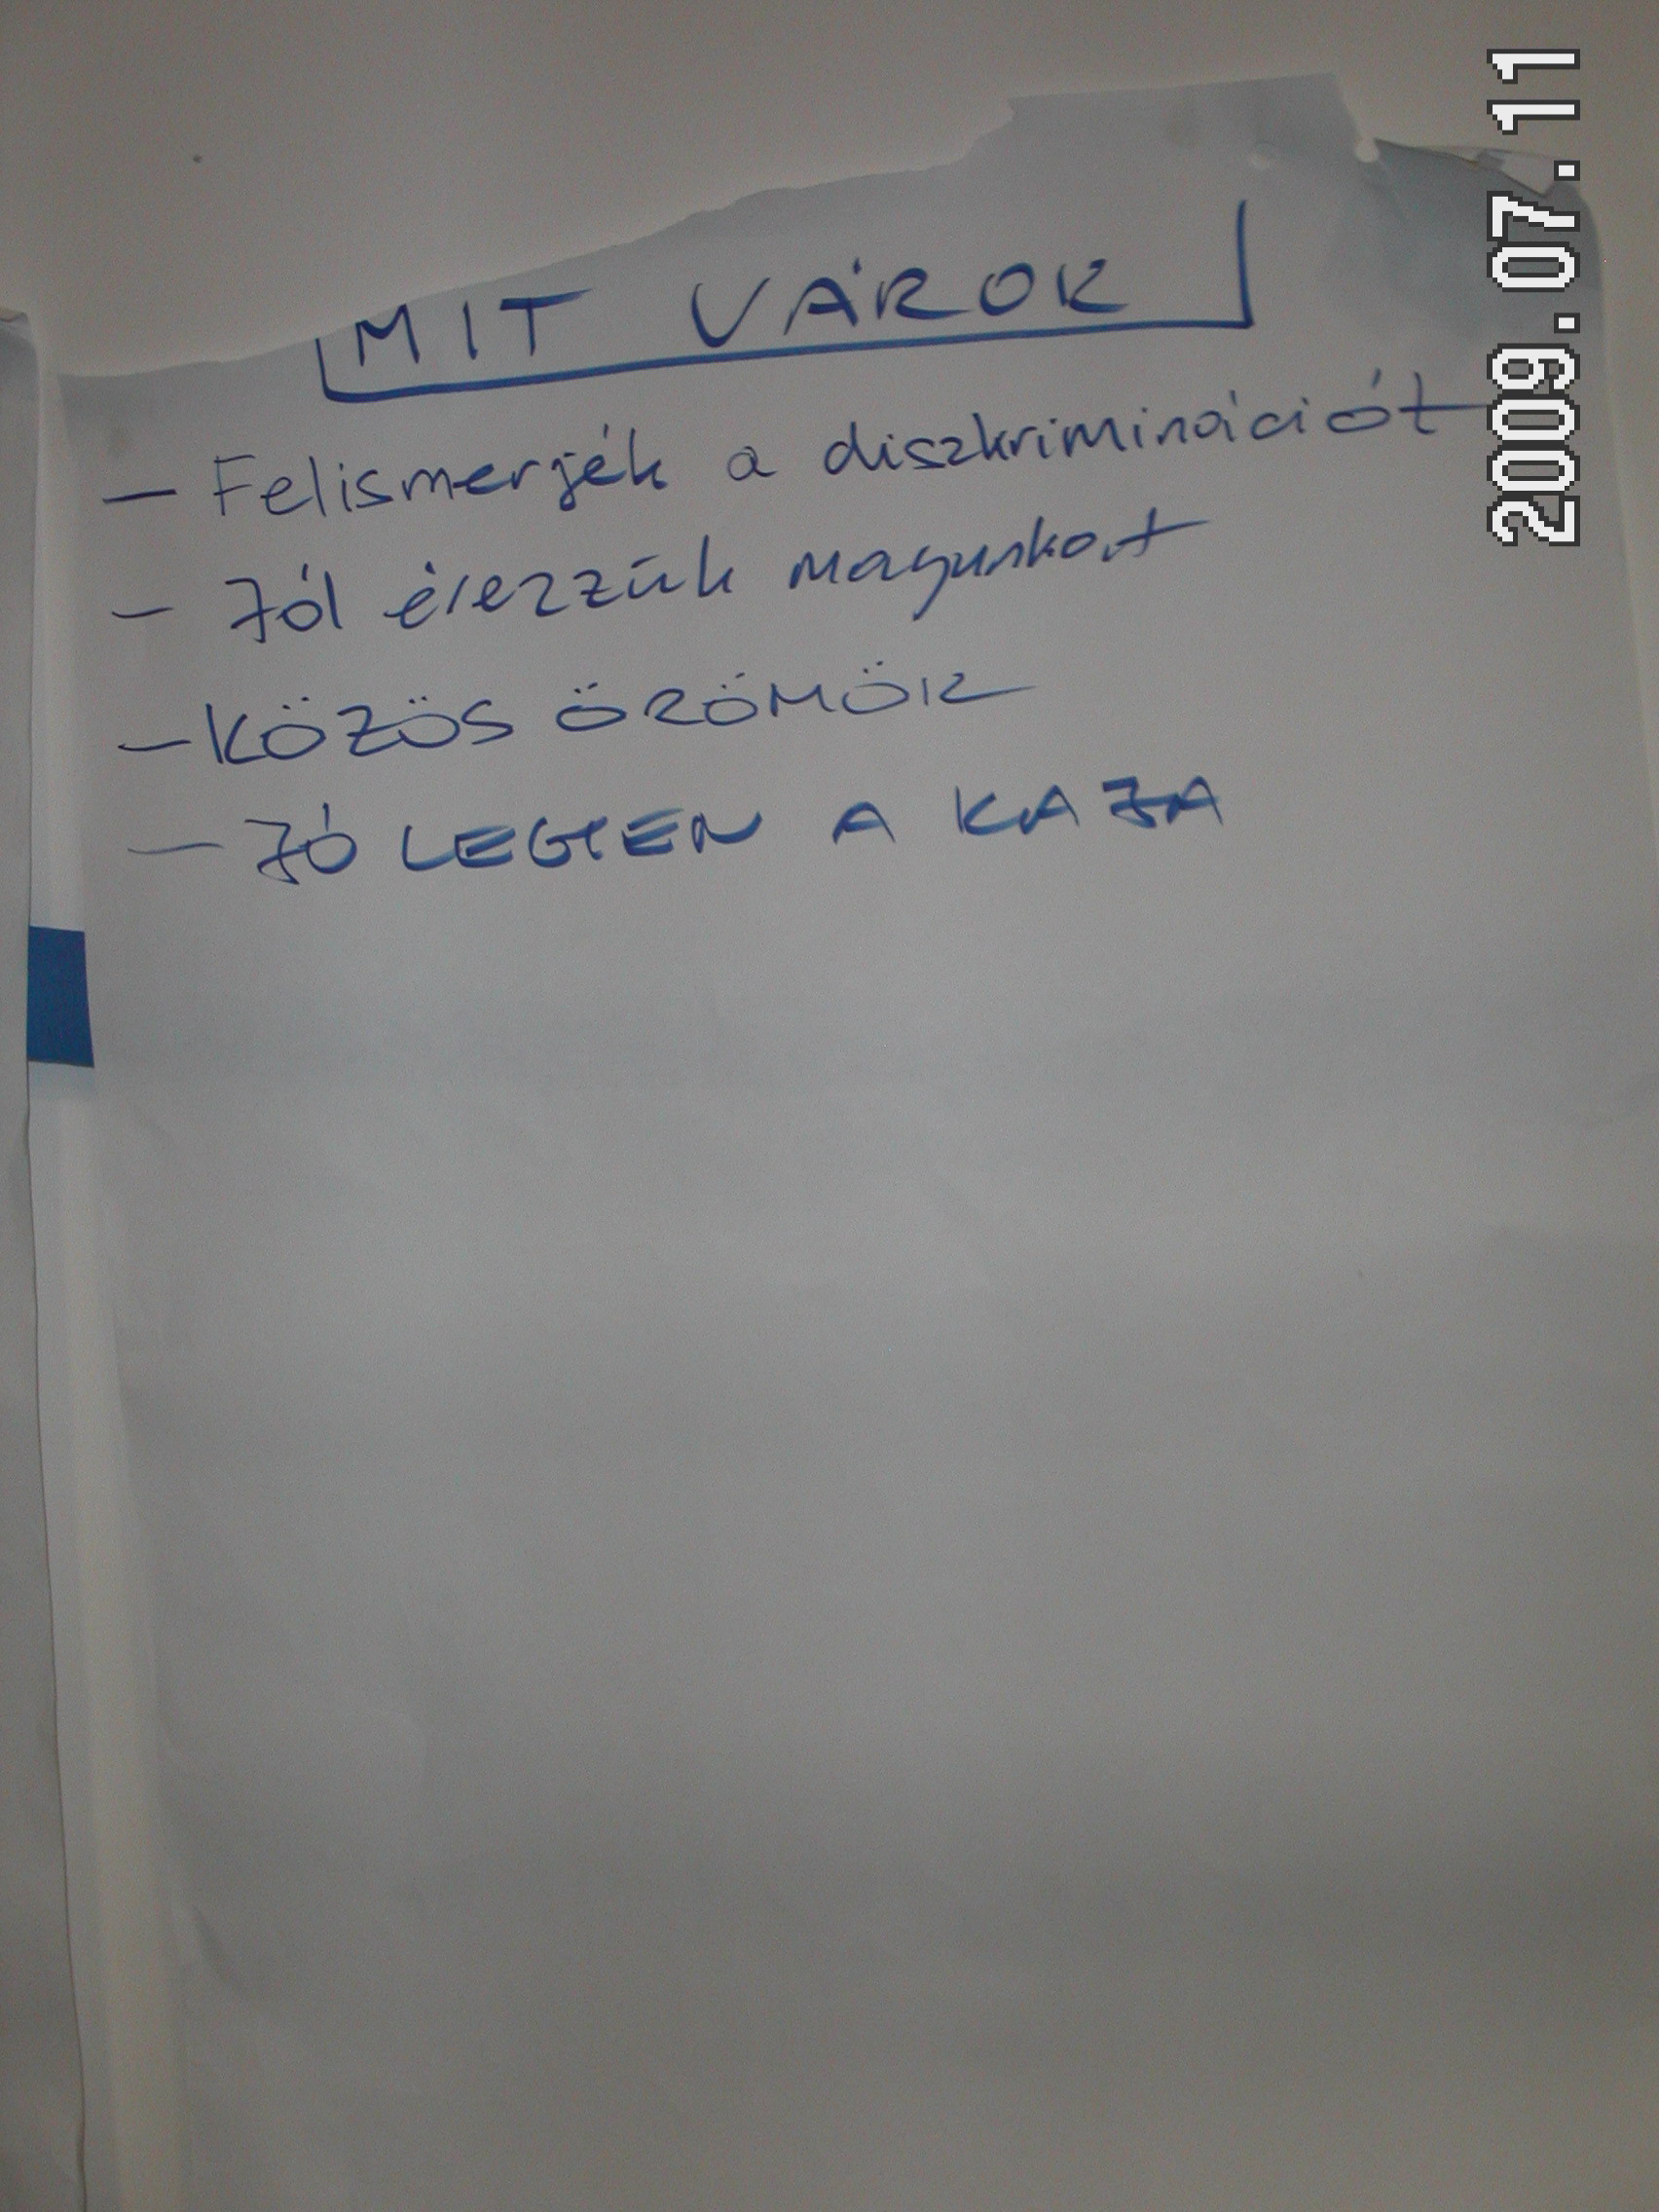 MIT VÁROK
- Felismerjék a diszkriminációt
- Jól érezzük magunkat
- KÖZÖS ÖRÖMÖK
- JÓ LEGYEN A KAJA
2009.07.11